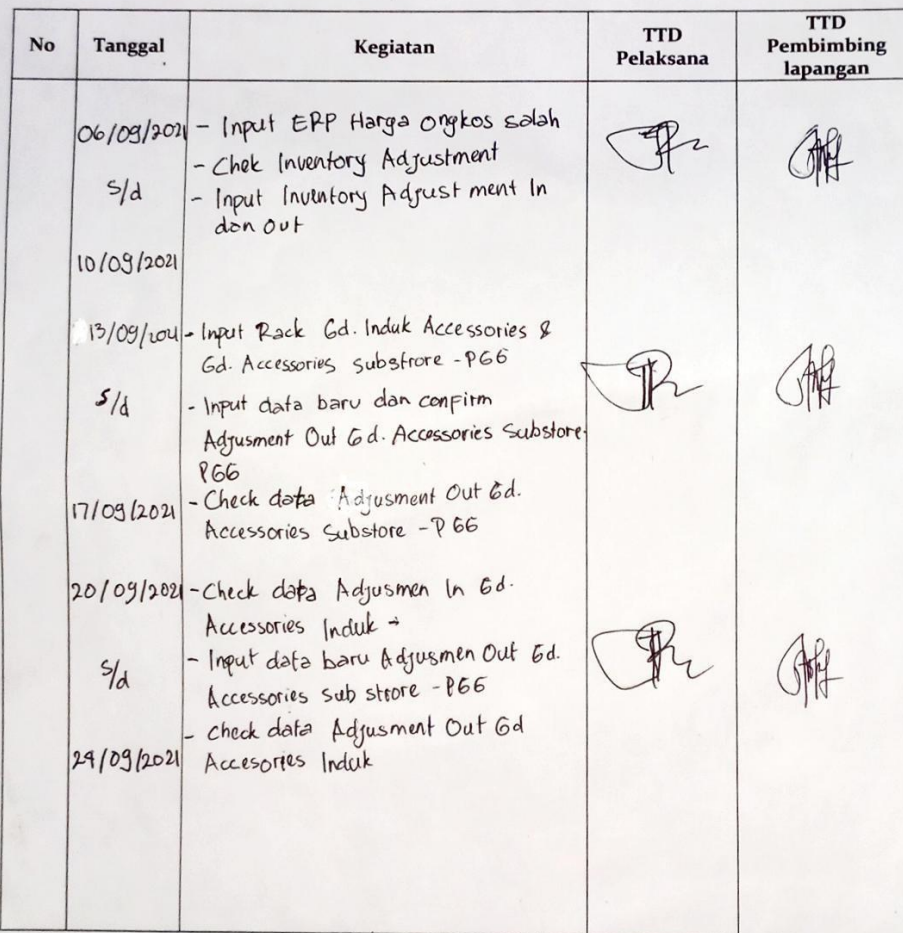 No Tanggal Kegiatan TTD Pelaksana TTD Pembimbing lapangan
06/09/2021 - Input ERP Harga Ongkos salah
- Chek Inventory Adjustment
s/d - Input Inventory Adjust ment In
dan Out
10/09/2021
13/09/2021 - Input Rack Gd. Induk Accessories &
Gd. Accessories substrore - P66
s/d - Input data baru dan confirm
Adjusment Out Gd. Accessories Substore-
P66
- Check data Adjusment Out Gd.
17/09/2021 Accessories Substore - P66
20/09/2021 - Check data Adjusmen In Gd.
Accessories Induk →
s/d - Input data baru Adjusmen Out Gd.
Accessories sub strore - P66
- Check data Adjusment Out Gd
24/09/2021 Accesories Induk